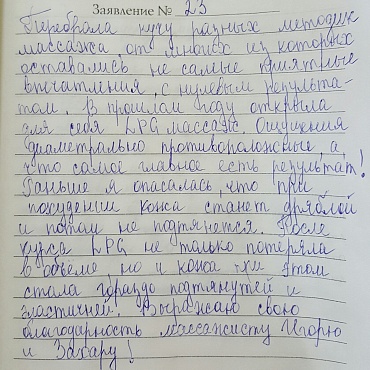 Заявление № 23
Перебрала кучу разных методик
массажа, от многих из которых
оставались не самые приятные
впечатления, с нулевым результа-
том. В прошлом году открыла
для себя LPG массаж. Ощущения
диаметрально противоположные, а
что самое главное есть результат!
Раньше я опасалась, что при
похудении кожа станет дряблой
и потом не подтянется. После
курса LPG не только потеряла
в объёме, но и кожа при этом
стала гораздо подтянутей и
эластичней. Выражаю свою
благодарность массажисту Игорю
и Захару!